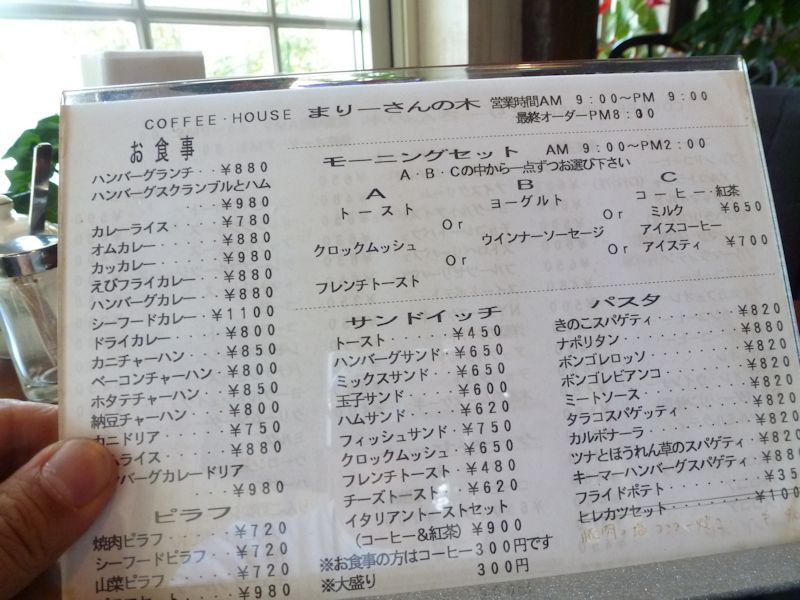 COFFEE・HOUSE まりーさんの木 営業時間AM 9:00〜PM 9:00
最終オーダーPM8:30
お食事
ハンバーグランチ・・¥880
ハンバーグスクランブルとハム
・・¥980
カレーライス・・¥780
オムカレー・・・¥880
カッカレー・・・¥980
えびフライカレー・・¥880
ハンバーグカレー・・¥880
シーフードカレー・¥1100
ドライカレー・・・¥800
カニチャーハン・・¥850
ベーコンチャーハン・¥800
ホタテチャーハン・・¥850
納豆チャーハン・・¥800
カニドリア・・・・¥750
ムライス・・・・¥880
ンバーグカレードリア
・・¥980
ピラフ
焼肉ピラフ・・・¥720
シーフードピラフ・・¥720
山菜ピラフ・・・¥720
¥980
モーニングセット AM 9:00〜PM2:00
A・B・Cの中から一点ずつお選び下さい
A B C
トースト Or ヨーグルト Or コーヒー・紅茶
ミルク ¥650
クロックムッシュ Or ウインナーソーセージ Or アイスコーヒー
アイスティ ¥700
フレンチトースト
サンドイッチ
トースト・・・・・¥450
ハンバーグサンド・¥650
ミックスサンド・・¥650
玉子サンド・・・・¥600
ハムサンド・・・・¥620
フィッシュサンド・¥750
クロックムッシュ・¥650
フレンチトースト・¥480
チーズトースト・・¥620
イタリアントーストセット
(コーヒー&紅茶) ¥900
※お食事の方はコーヒー300円です
※大盛り 300円
パスタ
きのこスパゲティ・・・・・¥820
ナポリタン・・・・・・・・¥880
ボンゴレロッソ・・・・・・¥820
ボンゴレビアンコ・・・・・¥820
ミートソース・・・・・・・¥820
タラコスパゲッティ・・・・¥820
カルボナーラ・・・・・・・¥820
ツナとほうれん草のスパゲティ・¥820
キーマーハンバーグスパゲティ・¥88
フライドポテト・・・・・・¥35
ヒレカツセット・・・・・・¥100